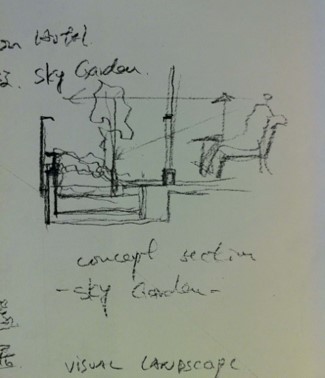 Hotel
Sky Garden.
concept section
-Sky Garden-
VISUAL LANDSCAPE